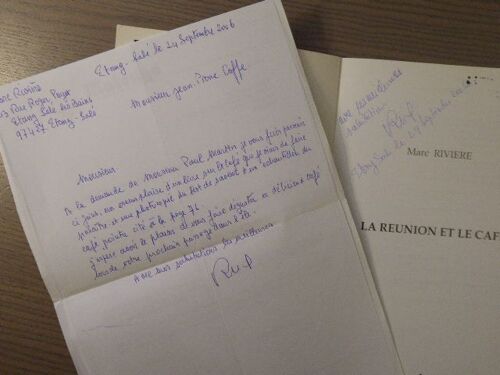 Marc Rivière
Rue Roger Payet
Etang Salé les Bains
97427 Etang-Salé
Etang Salé le 24 Septembre 2006
Monsieur Jean-Pierre Coffe
Monsieur
A la demande de Monsieur Paul Martin je vous fais parvenir
ci joint un exemplaire d'un livre sur le café que je viens de faire
paraître et une photocopie du test de saveur d'un échantillon du
café pointu cité à la page 76.
J'espère avoir le plaisir de vous faire déguster ce délicieux café
lors de votre prochain passage dans l'île.
Avec mes salutations les meilleures
salutations
Etang Salé le 24 Septembre
Marc RIVIERE
LA REUNION ET LE CAF